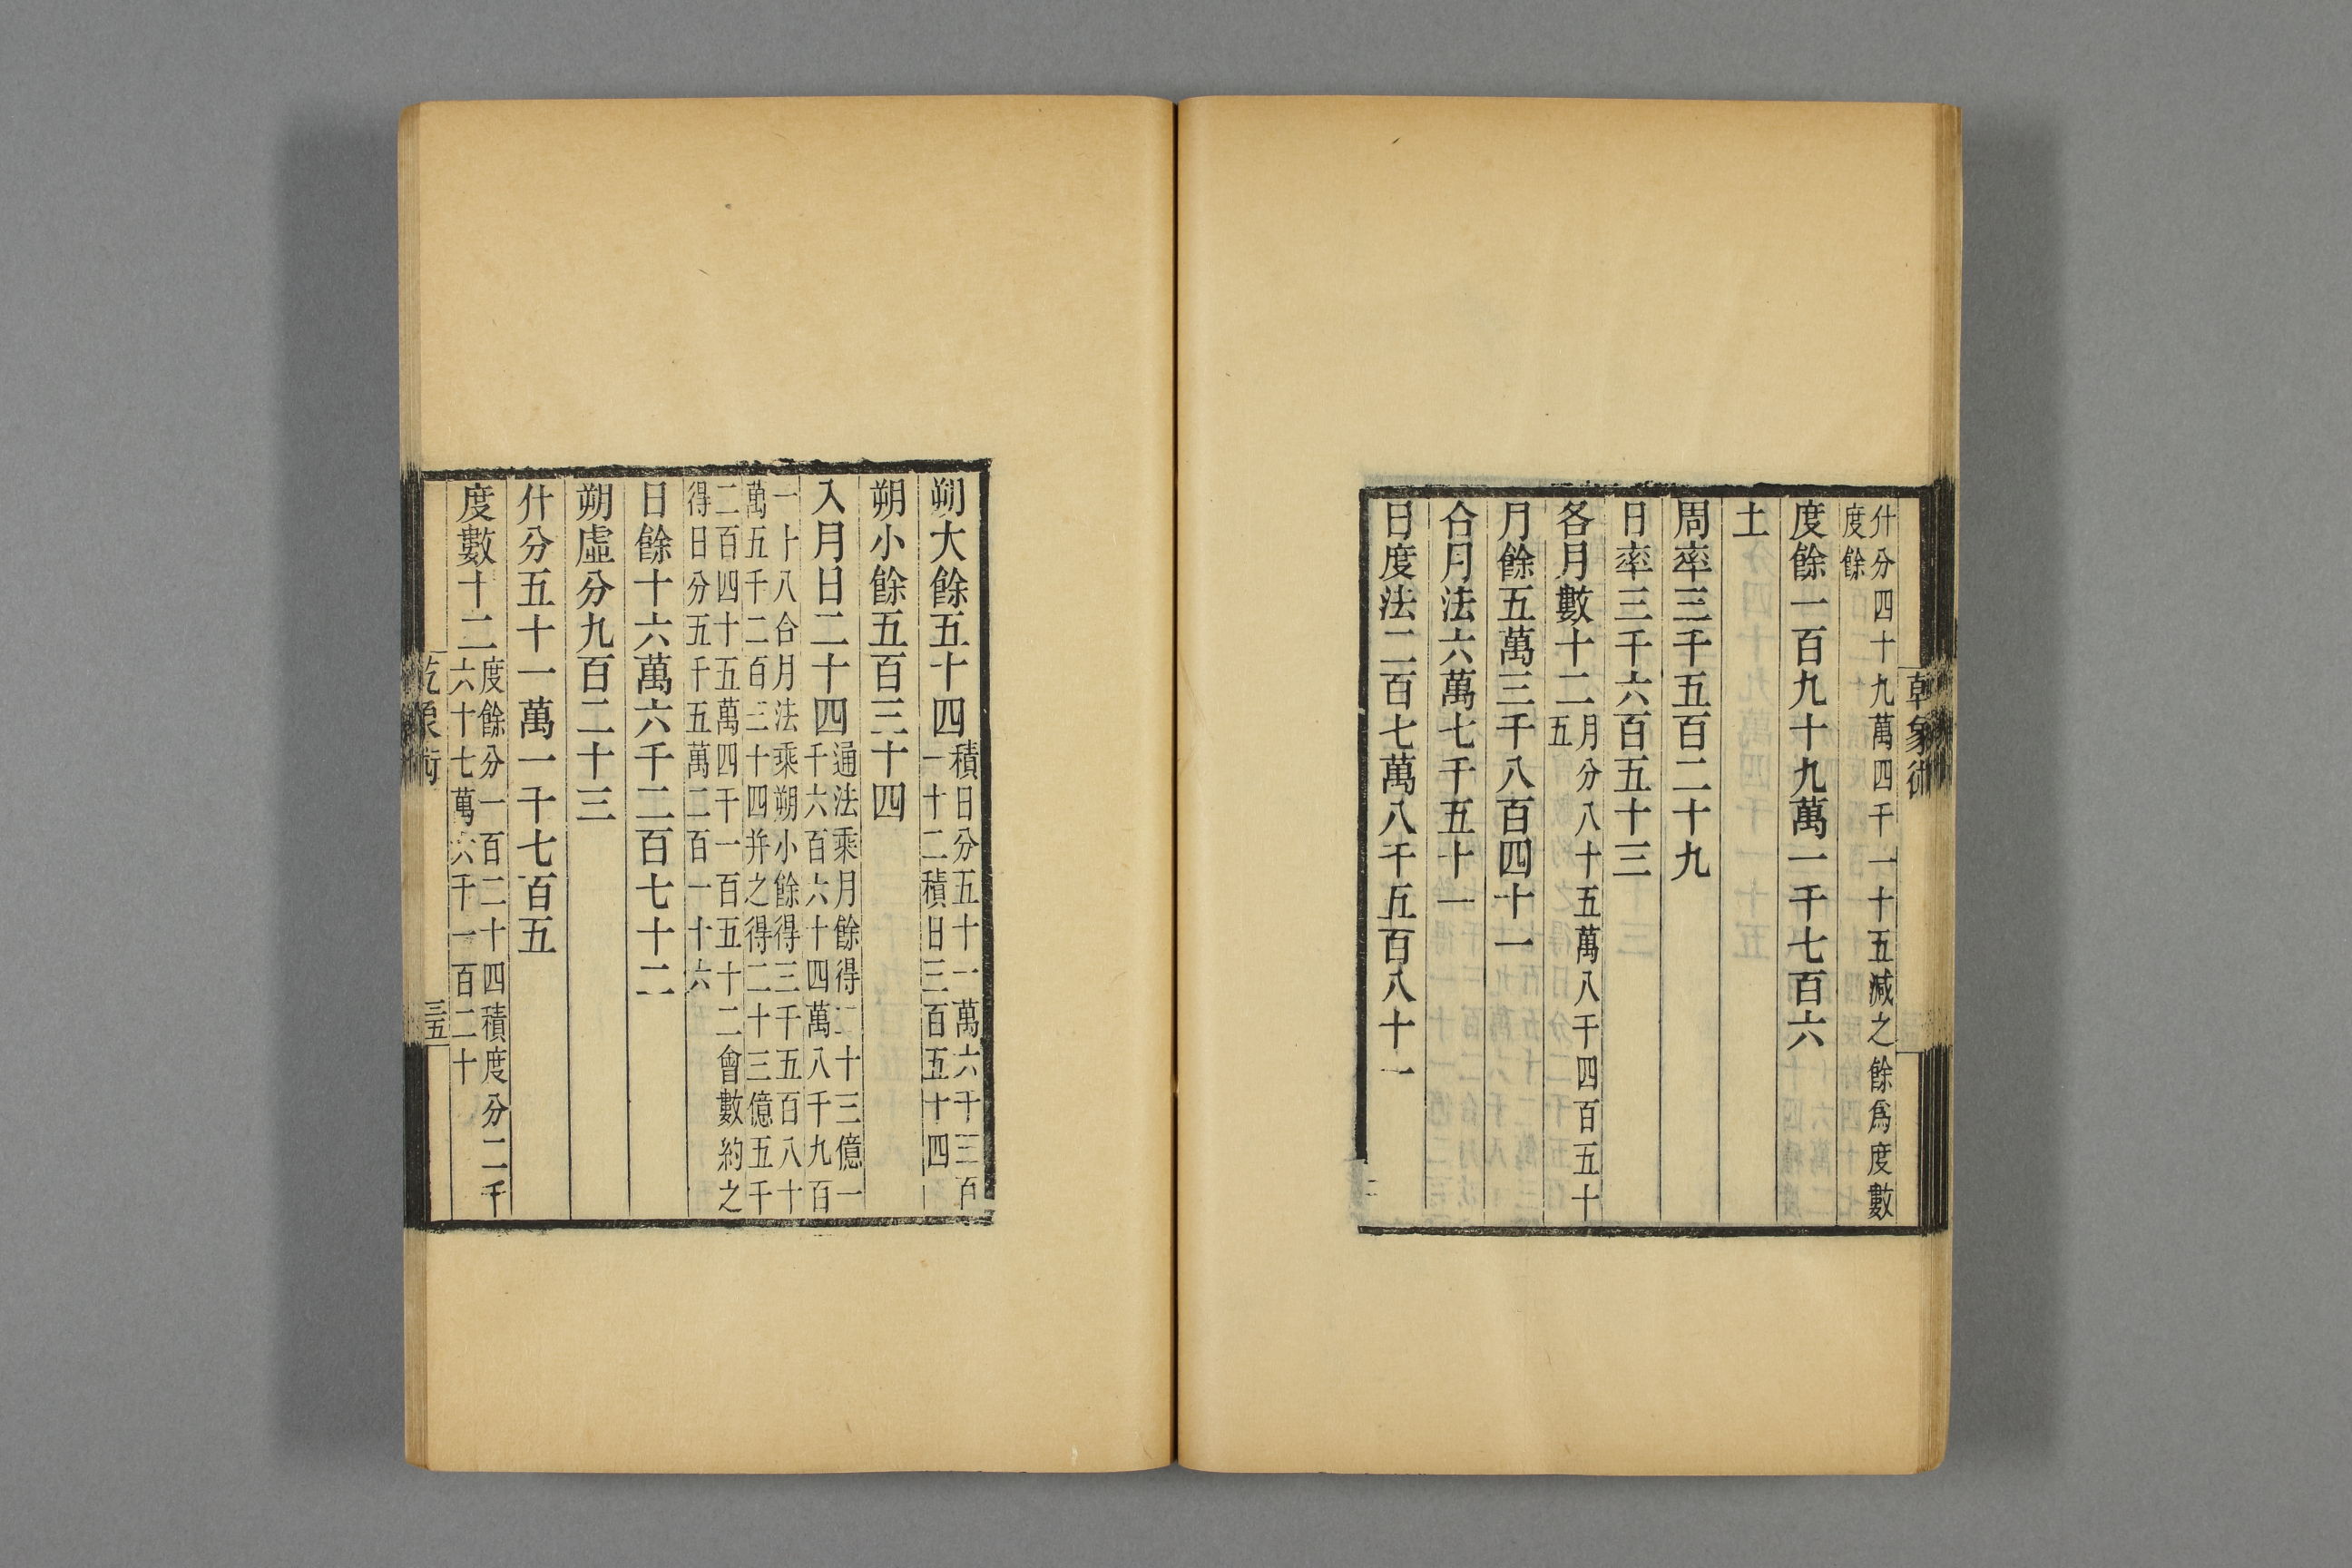 什分四十九萬四千一十五減之餘爲度數
度餘
度餘一百九十九萬一千七百六
土
周率三千五百二十九
日率三千六百五十三
各月數十二月分八十五萬八千四百五十
五
月餘五萬三千八百四十一
合月法六萬七千五十一
日度法二百七萬八千五百八十一
朔大餘五十四積日分五十一萬六千三百
一十二積日三百五十四
朔小餘五百三十四
入月日二十四通法乘月餘得二十三億一
千六百六十四萬八千九百
一十八合月法乘朔小餘得三千五百八十
萬五千二百三十四并之得二十三億五千
二百四十五萬四千一百五十二會數約之
得日分五千五萬二百一十六
日餘十六萬六千二百七十二
朔虛分九百二十三
什分五十一萬一千七百五
度數十二度餘分一百二十四積度分二千
六十七萬六千一百二十
乾象術
三五